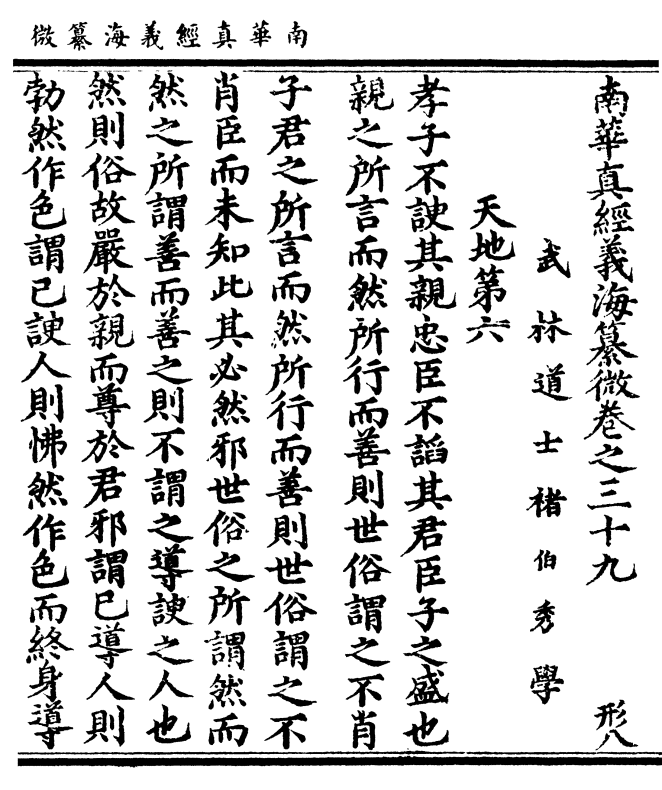 南華真經義海纂微
南華真經義海纂微卷之三十九 形八
武林道士褚伯秀學
天地第六
孝子不諛其親忠臣不諂其君臣子之盛也
親之所言而然所行而善則世俗謂之不肖
子君之所言而然所行而善則世俗謂之不
肖臣而未知此其必然邪世俗之所謂然而
然之所謂善而善之則不謂之導諛之人也
然則俗故嚴於親而尊於君邪謂已導人則
勃然作色謂已諛人則怫然作色而終身導